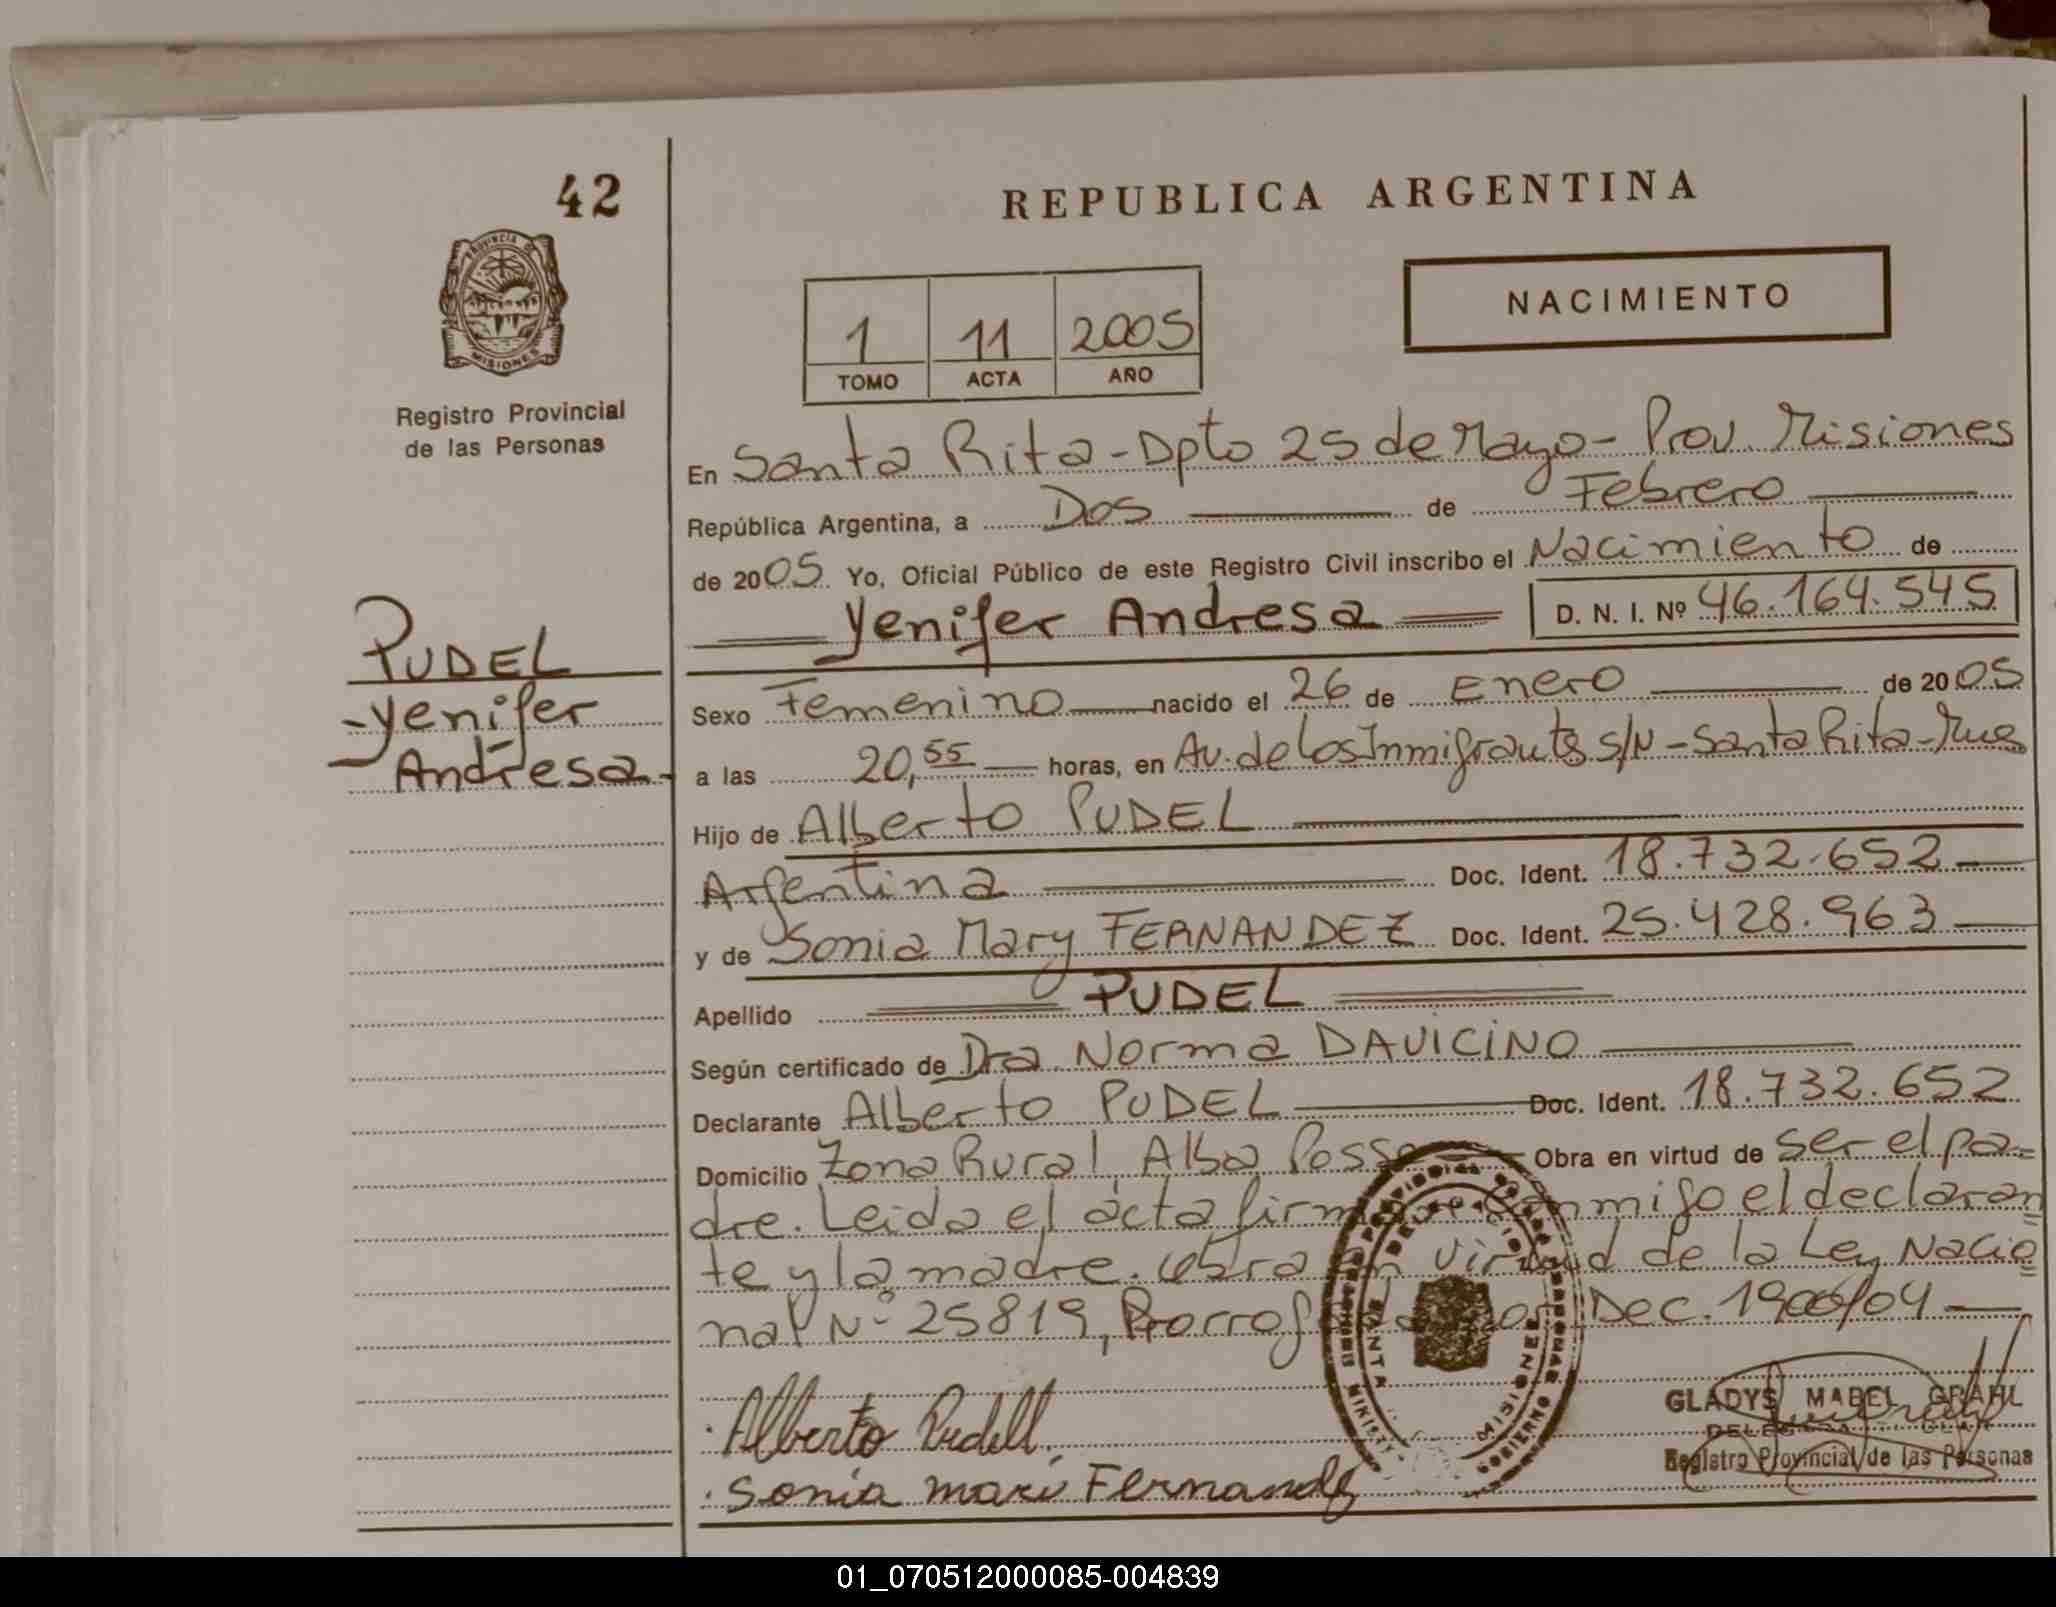 42
REPUBLICA ARGENTINA
PROVINCIA DE
MISIONES
Registro Provincial
de las Personas
NACIMIENTO
1 11 2005
TOMO ACTA AÑO
En Santa Rita - Dpto 25 de Mayo - Prov. Misiones
República Argentina, a Dos de Febrero
de 2005 Yo, Oficial Público de este Registro Civil inscribo el Nacimiento de
Yenifer Andresa D. N. I. Nº 46.164.545
PUDEL
-Yenifer
Andresa-
Sexo Femenino nacido el 26 de Enero de 2005
a las 20,55 horas, en Av. de Los Inmigrantes s/N - Santa Rita - Mnes
Hijo de Alberto PUDEL
Argentina Doc. Ident. 18.732.652
y de Sonia Mary FERNANDEZ Doc. Ident. 25.428.963
Apellido PUDEL
Según certificado de Dra Norma DAVICINO
Declarante Alberto PUDEL Doc. Ident. 18.732.652
Domicilio Zona Rural, Alba Posse Obra en virtud de ser el pa=
dre. Leida el acta firma conmigo el declaran
te y la madre. Obra en virtud de la Ley Nacio
nal Nº 25819, Dec. 1906/04
Alberto Pudell
Sonia mari Fernandez
SANTA
MISIONES
GOBIERNO
GLADYS MABEL GRAHL
Registro Provincial de las Personas
01_070512000085-004839